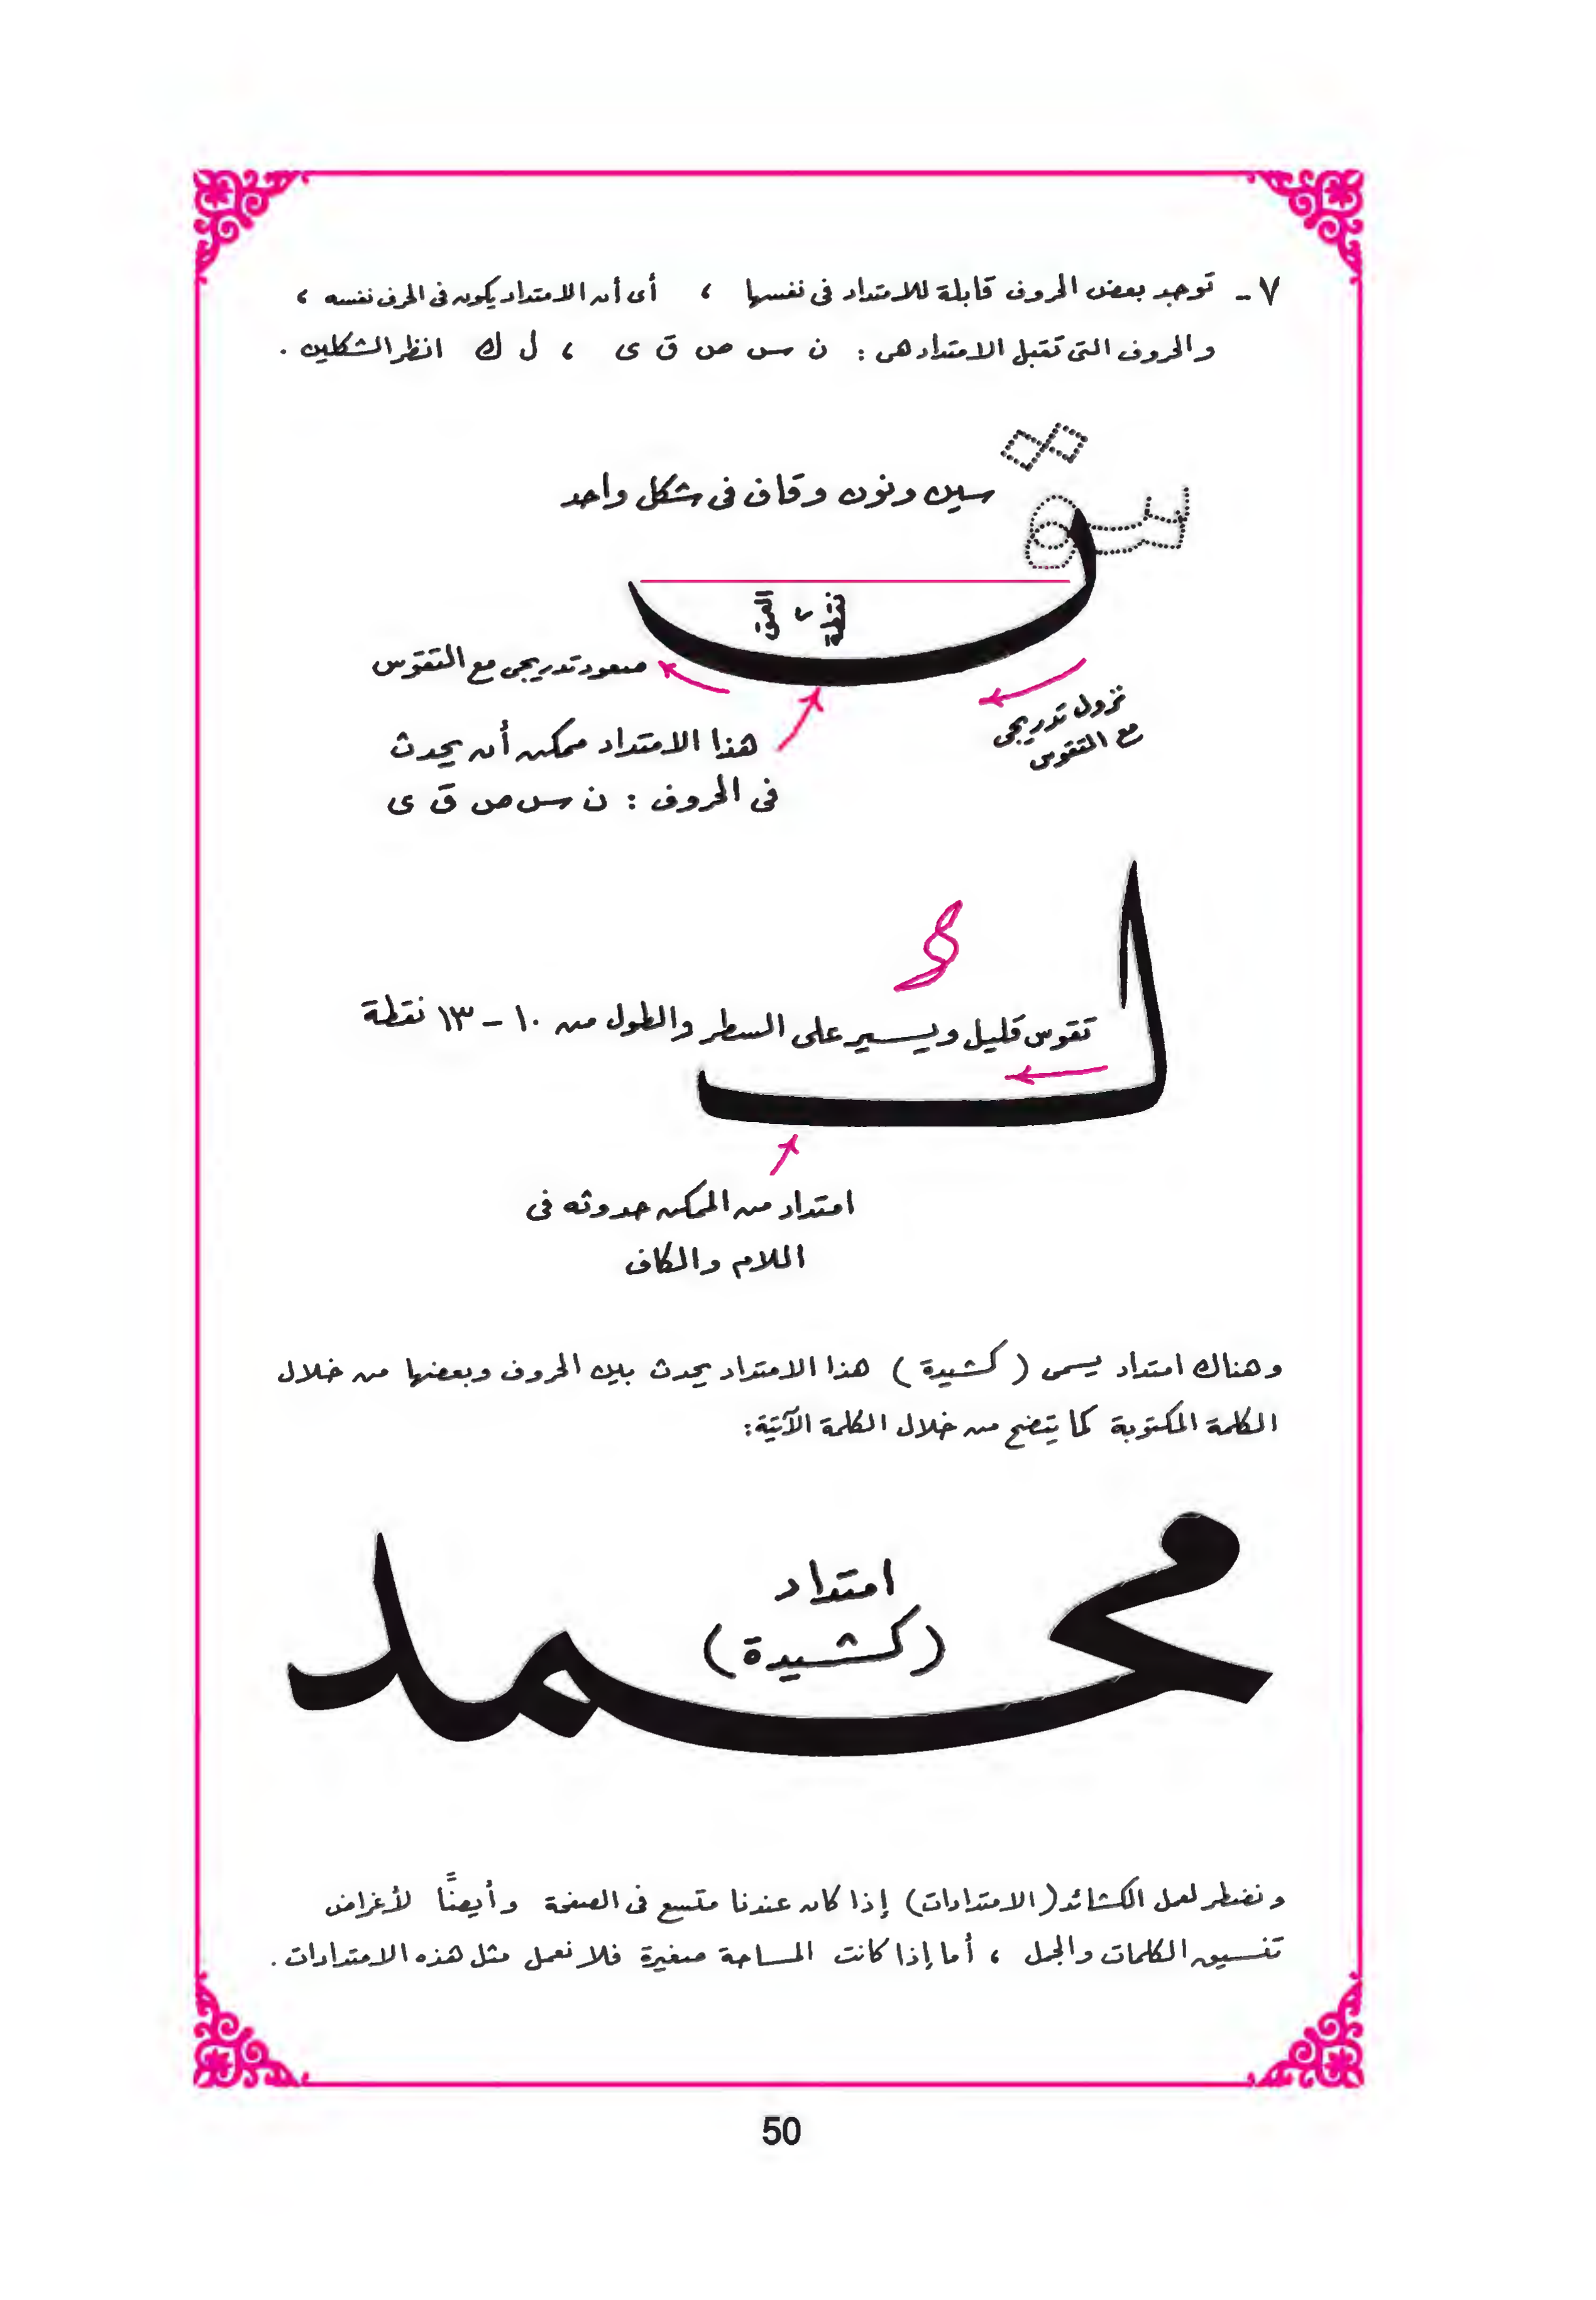 ٧ - توجد بعض الحروف قابلة للامتداد فى نفسها ، أى أن الامتداد يكون فى الحرف نفسه ،
والحروف التى تقبل الامتداد هى : ن س ص ق ى ، ل ك انظر الشكلين .
سين ونون وقاف فى شكل واحد
العمق ٢ نقطة
صعود تدريجى مع التقوس
نزول تدريجى
مع التقوس
هذا الامتداد ممكن أن يحدث
فى الحروف : ن س ص ق ى
تقوس قليل ويسير على السطر والطول من ١٠ – ١٣ نقطة
امتداد من الممكن حدوثه فى
اللام والكاف
وهناك امتداد يسمى ( كشيدة ) هذا الامتداد يحدث بين الحروف وبعضها من خلال
الكلمة المكتوبة كما يتضح من خلال الكلمة الآتية:
محمد
امتداد
(كشيدة)
ونضطر لعمل الكشائد (الامتدادات) إذا كان عندنا متسع فى الصفحة وأيضًا لأغراض
تنسيق الكلمات والجمل ، أما إذا كانت المساحة صغيرة فلا نعمل مثل هذه الامتدادات .
50